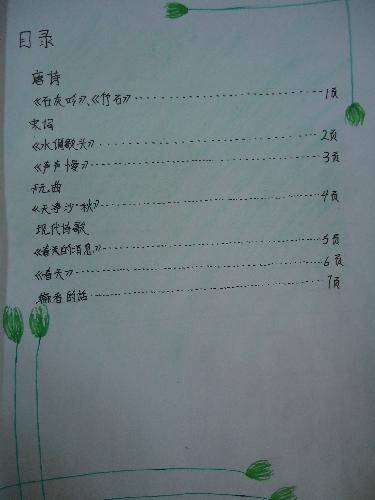 目录
唐诗
《石灰吟》、《竹石》 ………………… 1页
宋词
《水调歌头》 ………………… 2页
《声声慢》 ………………… 3页
元曲
《天净沙·秋》 ………………… 4页
现代诗歌
《春天的消息》 ………………… 5页
《春天》 ………………… 6页
编者的话 ………………… 7页